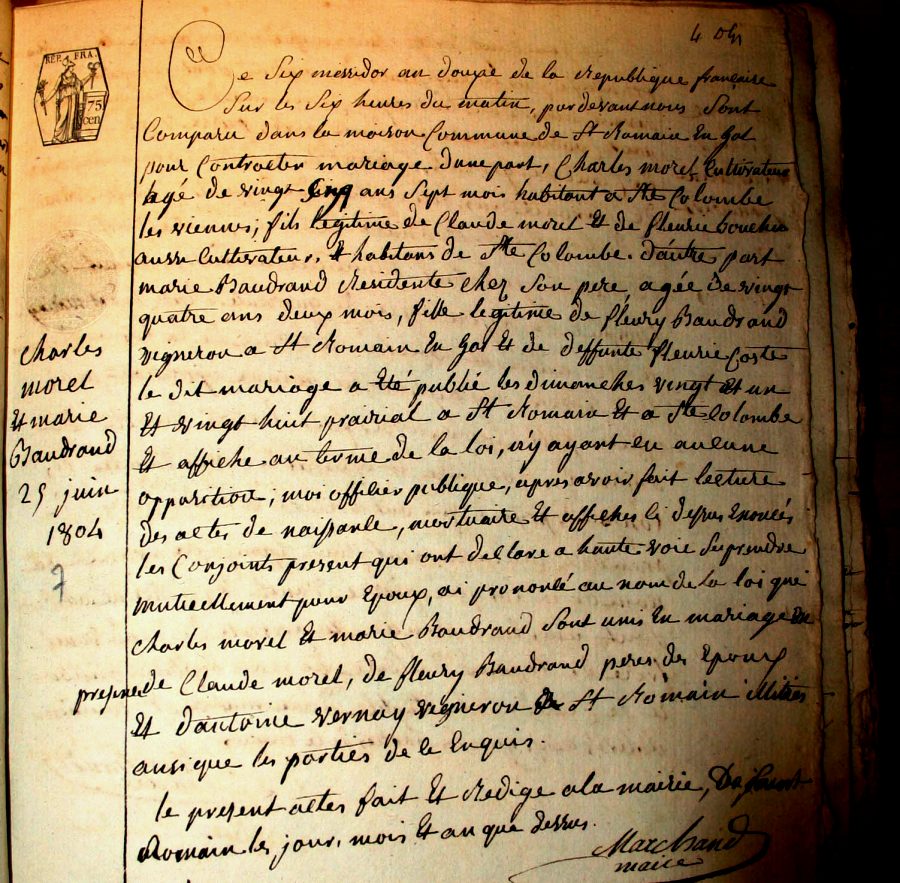 REP. FRA.
75
cen
Ce Six messidor an douze de la Republique françaisse
Sur les Six heures du matin, pardevant nous Sont
Comparu dans la maison Commune de St Romain En Gal
pour Contracter mariage dune part, Charles morel Cultivateur
agé de vingt Cinq ans Sept mois habitant a Ste Colombe
les viennes, fils legitime de Claude morel Et de fleurie bouchu
aussi Cultivateur, & habitans de Ste Colombe. d'autre part
marie Baudrand Residente chez Son pere agée De vingt
quatre ans deux mois, fille legitime de fleury Baudrand
vigneron a St Romain En Gal Et de deffunte fleurie Coste
le dit mariage a Eté publié les dimanches vingt Et un
Et vingt huit prairial a St Romain Et a Ste Colombe
Et affiche au terme de la loi, n'y ayant eu aucune
opposition, moi officier publique, apres avoir fait lecture
des actes de naissance, mortuaire Et affiches ci dessus Enoncés
les Conjoints present qui ont declare a haute voie Se prendre
mutuellement pour Epoux, ai prononcé au nom de la loi que
Charles morel Et marie Baudrand Sont unis En mariage En
presence de Claude morel, de fleury Baudrand peres des Epoux
Et d'antoine vernay vigneron St Romain illitéés
ansi que les parties de ce Enquis.
le present actes fait Et Redige a la mairie, De Saint
Romain les jour, mois Et an que dessus.
Marchand
maire
Charles
morel
Et marie
Baudrand
25 juin
1804
7